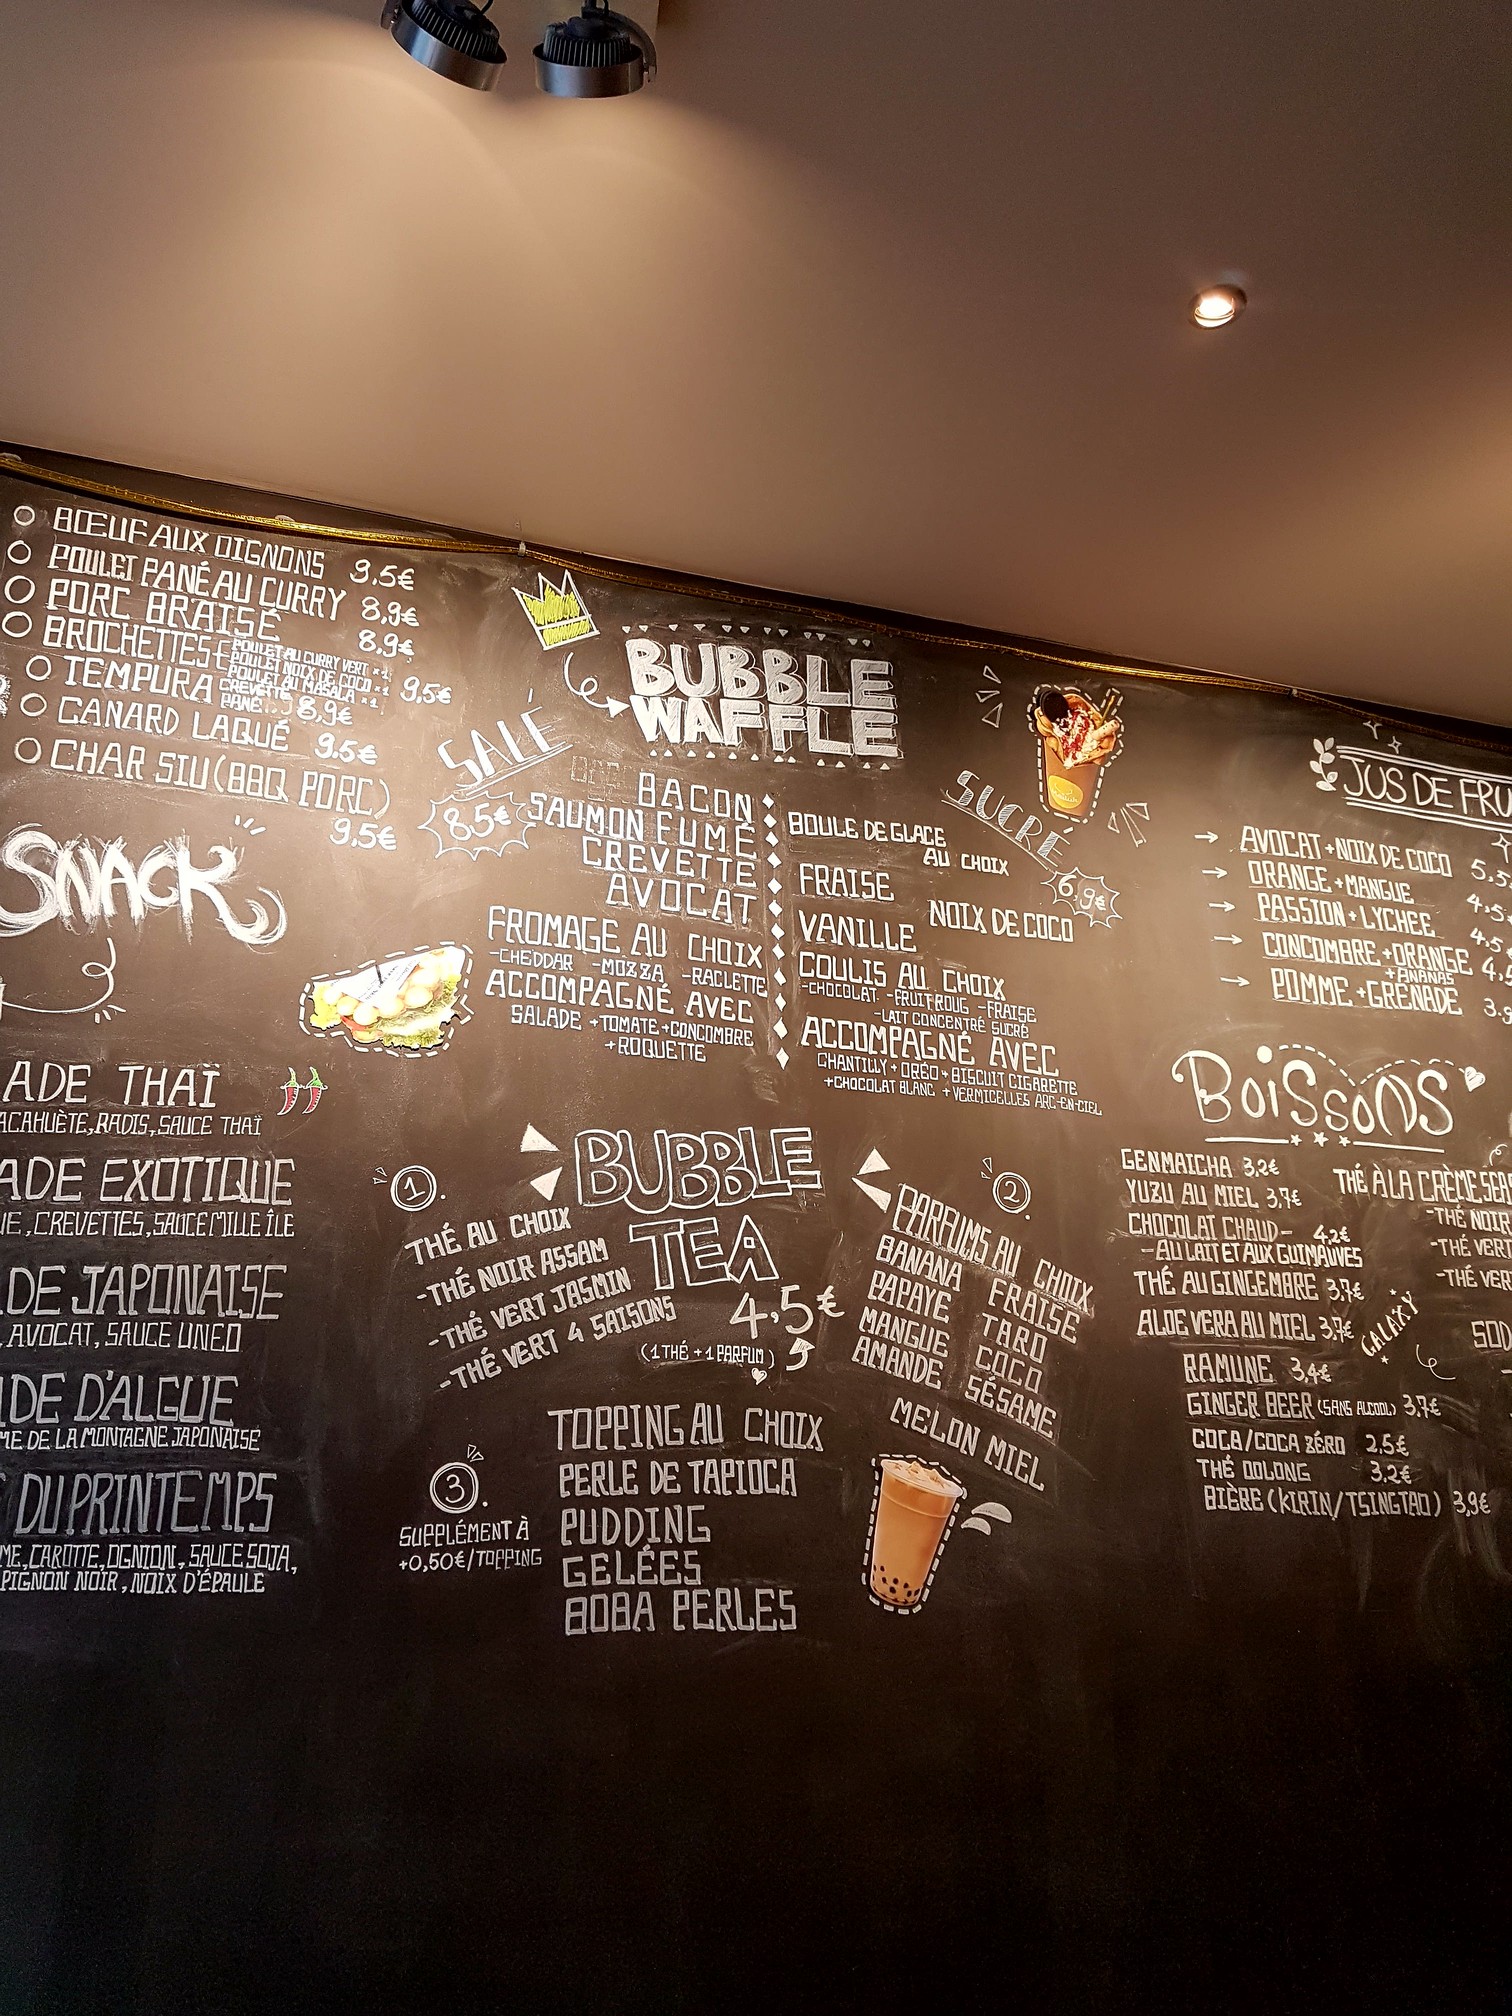 BŒUF AUX OIGNONS 9,5€
POULET PANÉ AU CURRY 8,9€
PORC BRAISÉ 8,9€
BROCHETTES
POULET AU CURRY VERT x1
POULET NOIX DE COCO x1
POULET AU MASALA x1
9,5€
TEMPURA CREVETTE
PANÉ... 8,9€
CANARD LAQUÉ 9,5€
CHAR SIU (BBQ PORC)
9,5€
SNACK
ADE THAÏ
ACAHUÈTE, RADIS, SAUCE THAÏ
ADE EXOTIQUE
UE, CREVETTES, SAUCE MILLE ÎLE
DE JAPONAISE
, AVOCAT, SAUCE UNEO
DE D'ALGUE
ME DE LA MONTAGNE JAPONAISE
DU PRINTEMPS
ME, CAROTTE, OGNION, SAUCE SOJA,
PIGNON NOIR, NOIX D'ÉPAULE
BUBBLE
WAFFLE
SALÉ
8.5€
BACON
SAUMON FUMÉ
CREVETTE
AVOCAT
FROMAGE AU CHOIX
-CHEDDAR -MOZZA -RACLETTE
ACCOMPAGNÉ AVEC
SALADE +TOMATE+CONCOMBRE
+ROQUETTE
SUCRÉ
6,9€
BOULE DE GLACE
AU CHOIX
FRAISE
NOIX DE COCO
VANILLE
COULIS AU CHOIX
-CHOCOLAT -FRUIT ROUG -FRAISE
-LAIT CONCENTRÉ SUCRÉ
ACCOMPAGNÉ AVEC
CHANTILLY+ORÉO+BISCUIT CIGARETTE
+CHOCOLAT BLANC +VERMICELLES ARC-EN-CIEL
BUBBLE
TEA
4,5€
(1 THÉ +1 PARFUM)
1.
THÉ AU CHOIX
-THÉ NOIR ASSAM
-THÉ VERT JASMIN
-THÉ VERT 4 SAISONS
2.
PARFUMS AU CHOIX
BANANA FRAISE
PAPAYE TARO
MANGUE COCO
AMANDE SÉSAME
MELON MIEL
3.
SUPPLÉMENT À
+0,50€/TOPPING
TOPPING AU CHOIX
PERLE DE TAPIOCA
PUDDING
GELÉES
BOBA PERLES
JUS DE FRU
AVOCAT+NOIX DE COCO 5.5
ORANGE+MANGUE 4,5
PASSION+LYCHEE 4,5
CONCOMBRE+ORANGE
+ANANAS
POMME+GRENADE 3.9
BOISSONS
GENMAICHA 3,2€
YUZU AU MIEL 3,7€
CHOCOLAT CHAUD- 4,2€
-AU LAIT ET AUX GUIMAUVES
THÉ AU GINGEMBRE 3,7€
ALOE VERA AU MIEL 3,7€
RAMUNE 3,4€
GINGER BEER (SANS ALCOOL) 3,7€
COCA/COCA ZÉRO 2.5€
THÉ OOLONG 3,2€
BIÈRE (KIRIN/TSINGTAO) 3,9€
GALAXY
THÉ À LA CRÈME
-THÉ NOIR
-THÉ VERT
-THÉ VER
SOD